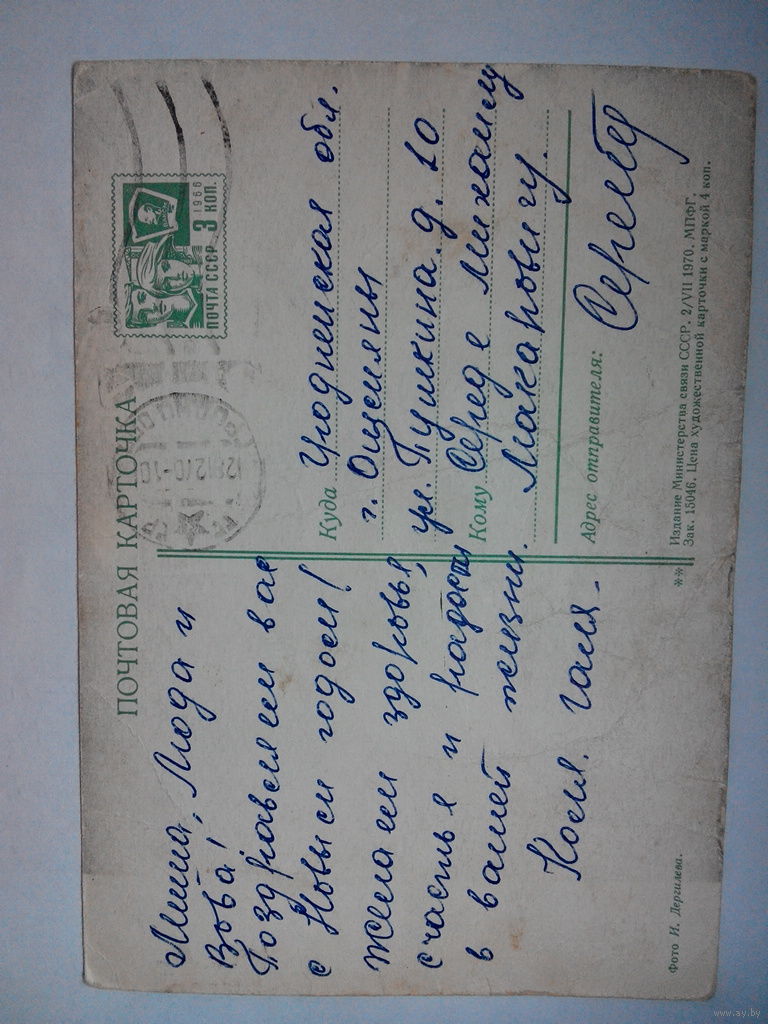 ПОЧТОВАЯ КАРТОЧКА
ПОЧТА СССР 3 КОП.
1966
Миша, Люда и
Вова!
Поздравляем вас
с Новым годом!
Желаем здоровья,
счастья и радости
в вашей жизни.
Коля. Галя.
Куда
обл.
г.
ул. Пушкина д. 10
Кому Середе Михаилу
Макаровичу.
Адрес отправителя:
Фото И. Дергилева.
**
Издание Министерства связи СССР. 2/VII 1970. МПФГ.
Зак. 15046. Цена художественной карточки с маркой 4 коп.
www.ay.by